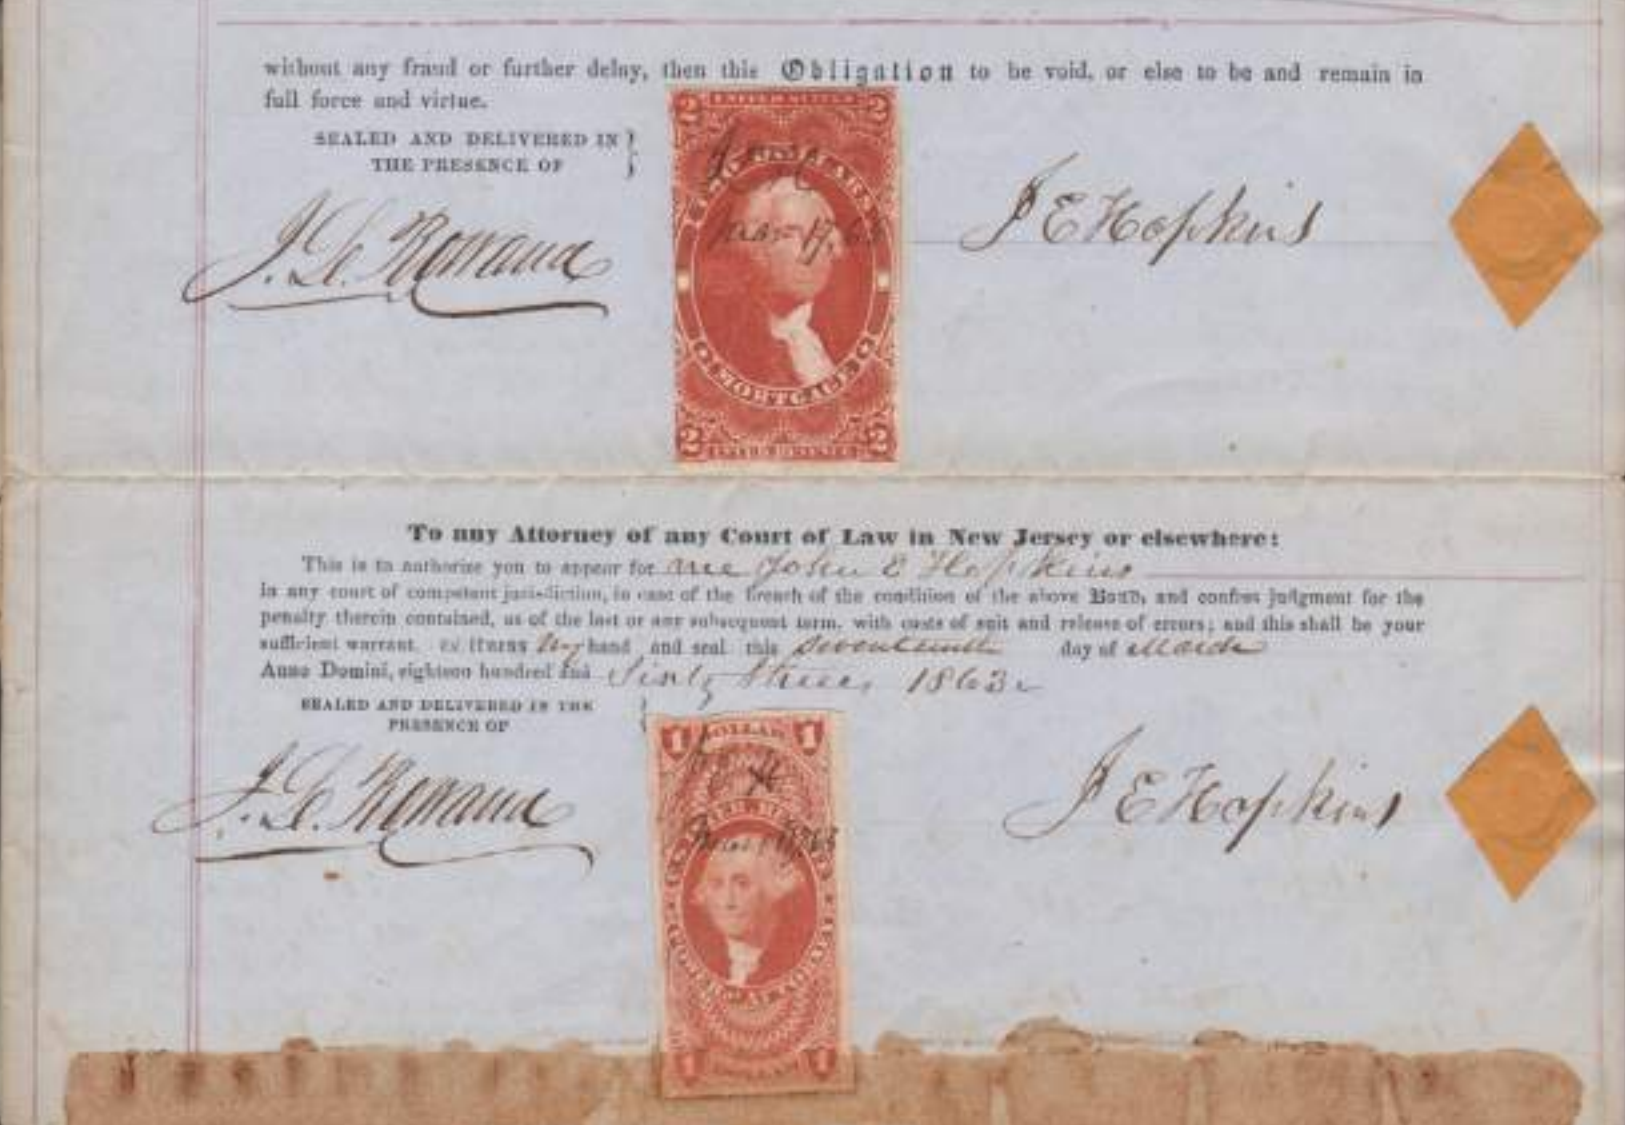 without any fraud or further delay, then this Obligation to be void, or else to be and remain in
full force and virtue.
SEALED AND DELIVERED IN }
THE PRESENCE OF
2 UNITED STATES 2
DOLLARS
Mar 17, 63
MORTGAGE
2 INTER. REVENUE 2
J E Hopkins
To any Attorney of any Court of Law in New Jersey or elsewhere:
This is to authorize you to appear for me John E Hopkins
in any court of competent jurisdiction, in case of the breach of the condition of the above Bond, and confess judgment for the
penalty therein contained, as of the last or any subsequent term, with costs of suit and release of errors; and this shall be your
sufficient warrant. Witness my hand and seal this Seventeenth day of March
Anno Domini, eighteen hundred and Sixty Three, 1863
SEALED AND DELIVERED IN THE
PRESENCE OF
1 DOLLAR 1
1 DOLLAR 1
J E Hopkins